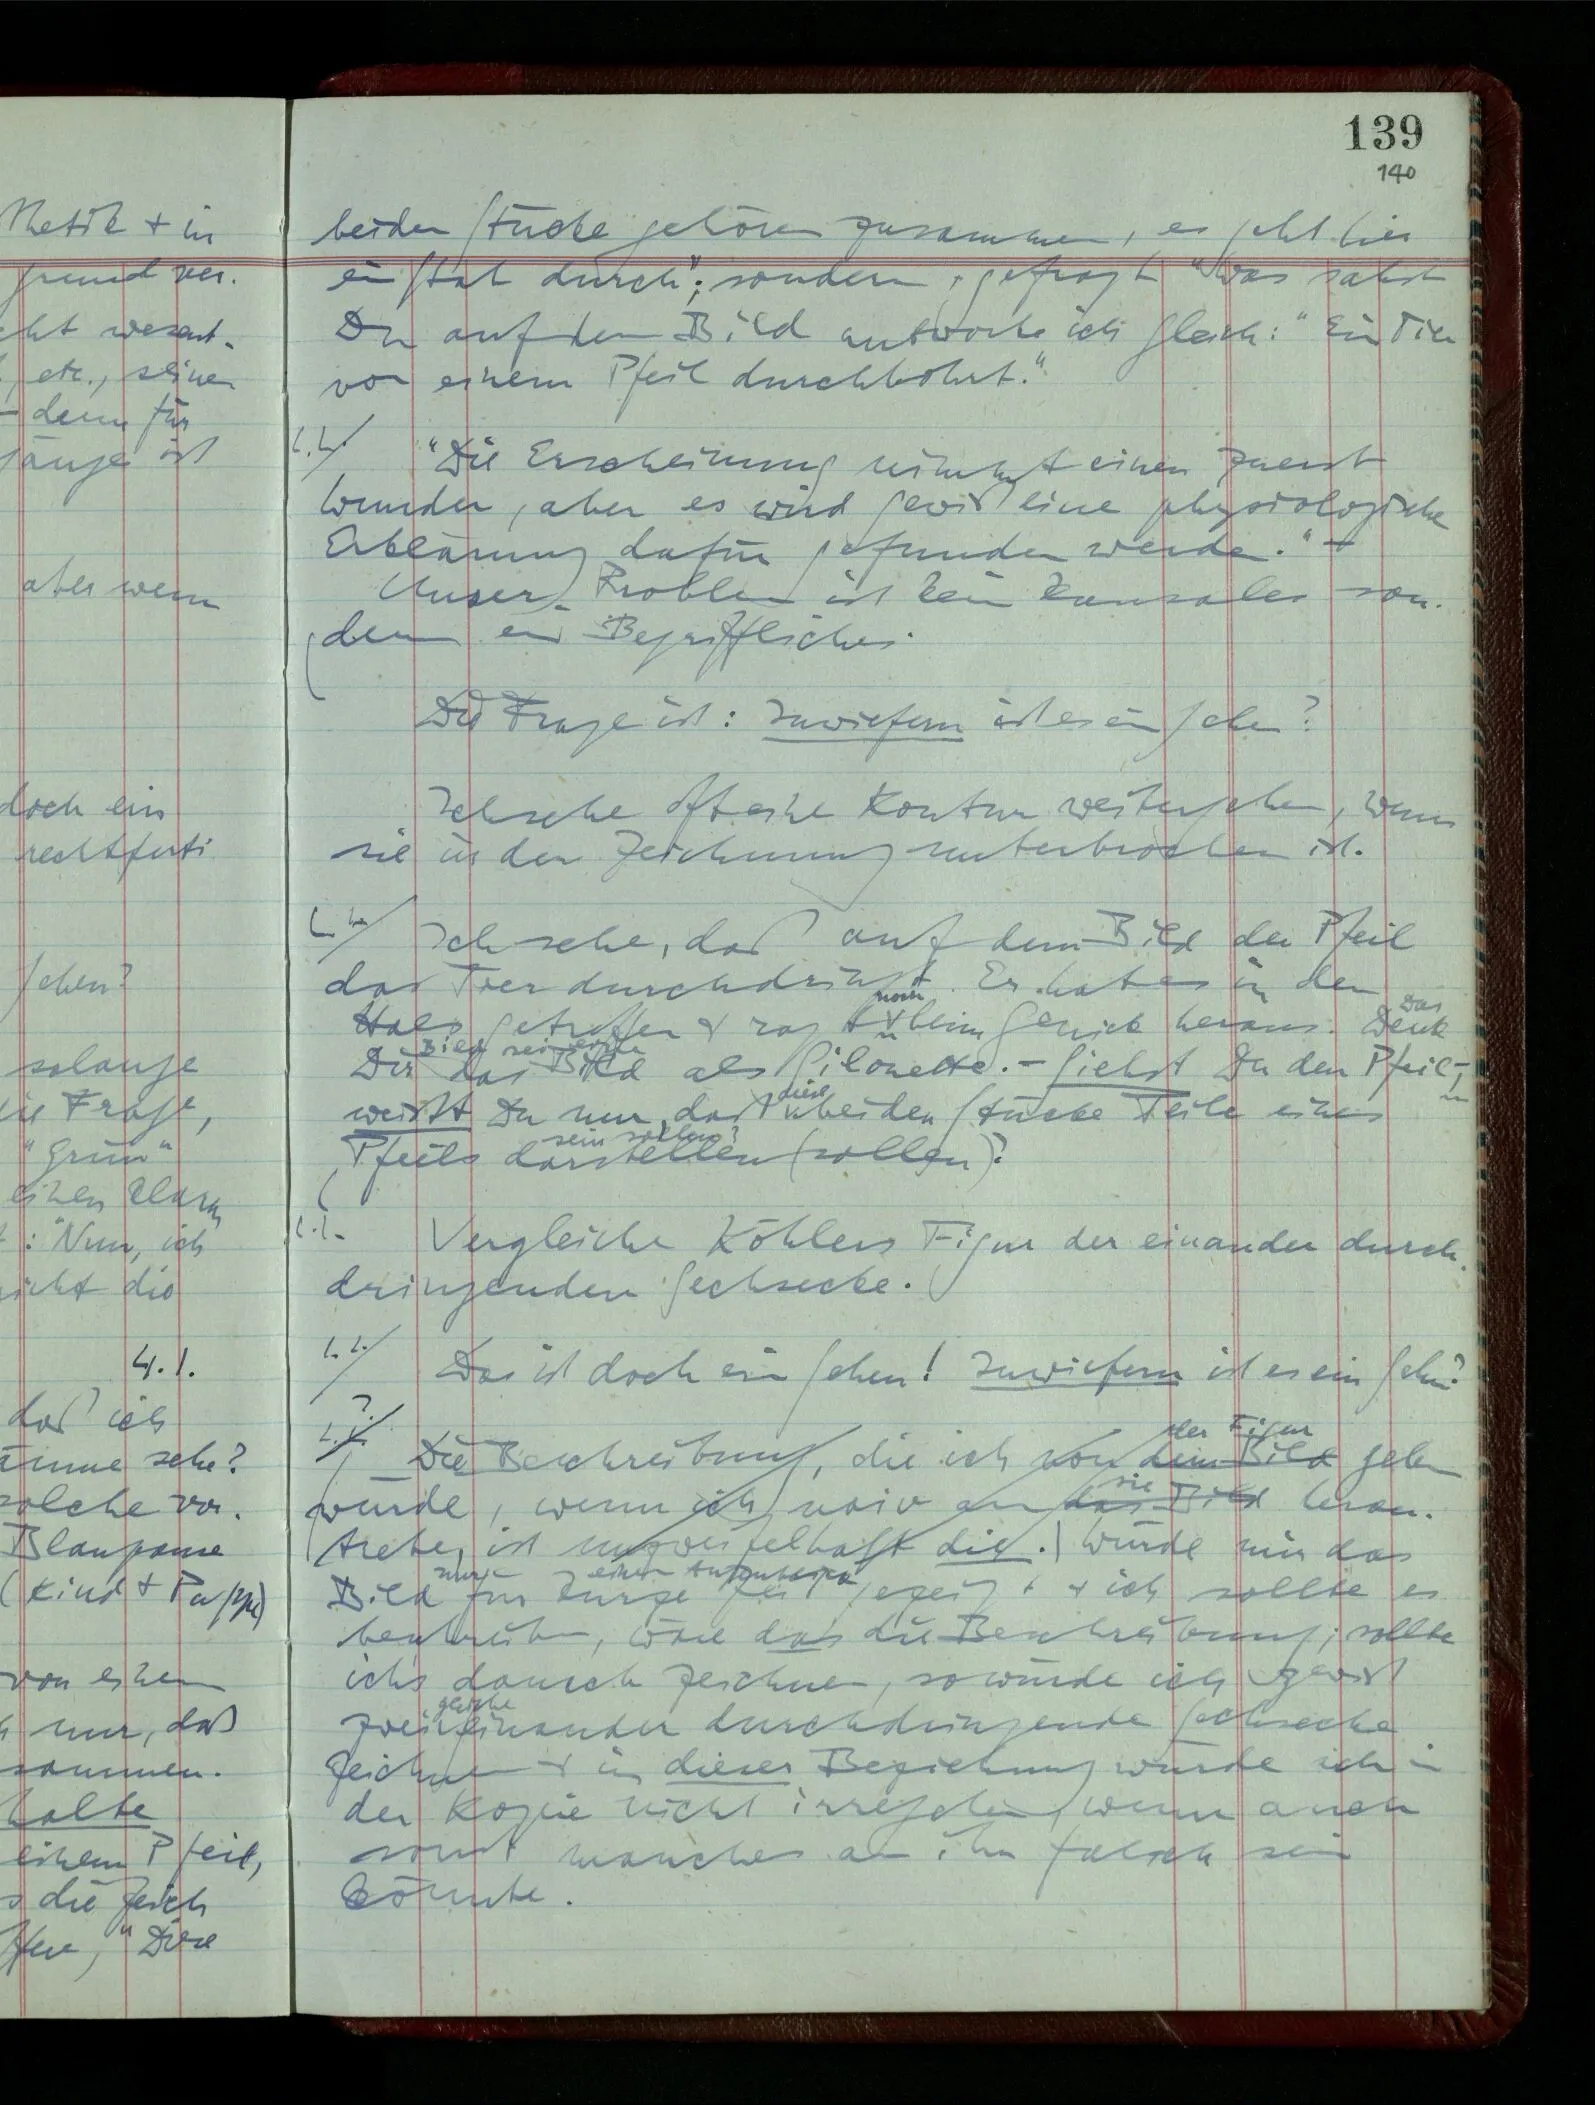 139
140
beiden Stücke gehören zusammen, es geht hier
ein Stab durch"; sondern, gefragt "Was sahst
Du auf dem Bild antworte ich gleich: "Ein Tier
von einem Pfeil durchbohrt."
"Die Erscheinung nimmt einen zuerst
wunder, aber es wird gewiß eine physiologische
Erklärung dafür gefunden werden." –
Unser Problem ist kein kausales son-
dern ein Begriffliches.
Die Frage ist: Inwiefern ist es ein Sehen?
Ich sehe oft eine Kontur weitergehen, wenn
sie in der Zeichnung unterbrochen ist.
Ich sehe, daß auf dem Bild der Pfeil
das Tier durchdringt. Er hat es in den
Hals getroffen & ragt beim Genick heraus. Denk
Das
Dir das Bild als Silouette. – Siehst Du den Pfeil –,
Bild sei eine
weißt Du nur, daß beiden Stücke Teile eines
diese
Pfeils darstellen (sollen)?
sein sollen?
Vergleiche Köhlers Figur der einander durch-
dringenden Sechsecke.
Das ist doch ein Sehen! Inwiefern ist es ein Sehen?
?
der Figur
Die Beschreibung, die ich von dem Bild geben
würde, wenn ich naiv an das Bild heran-
sie
trete, ist unzweifelhaft die. Würde mir das
Bild für kurze Zeit gezeigt & ich sollte es
nur einen Augenblick
beschreiben, wäre das die Beschreibung; sollte
ich's danach zeichnen, so würde ich gewiß
zwei einander durchdringende Sechsecke
gleiche
zeichnen & in dieser Beziehung würde ich in
der Kopie nicht irregehen, wenn auch
sonst manches an ihr falsch sein
könnte.
grund ver-
etc., seiner
– denn für
ist
aber wenn
doch ein
rechtferti
Sehen?
solange
die Frage,
"Grün"
einen
: "Nun, ich
nicht die
4.1.
daß ich
sehe?
solche vor.
von einem
nur, daß
sammen.
halte
einem Pfeil,
die Zeich
, "Diese